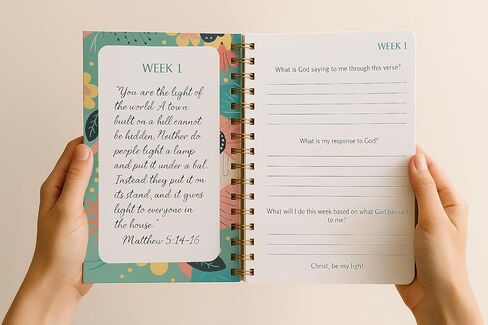 WEEK 1
"You are the light of
the world. A town
built on a hill cannot
be hidden. Neither do
people light a lamp
and put it under a bal.
Instead they put it on
its stand, and it gives
light to everyone in
the house."
Matthew 5:14-16
WEEK 1
What is God saying to me through this verse?
What is my response to God?
What will I do this week based on what God has said
to me?
Christ, be my light.